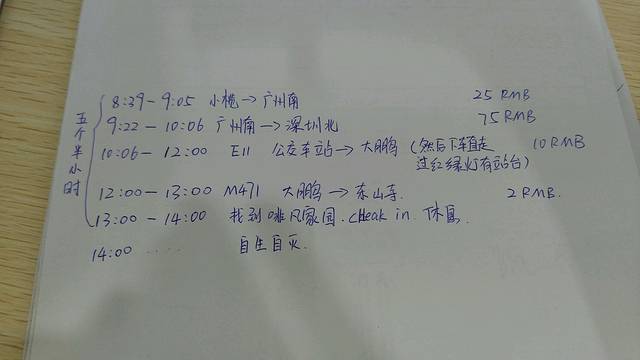 五个半小时
8:39-9:05 小榄→广州南 25 RMB
9:22-10:06 广州南→深圳北 75 RMB
10:06-12:00 E11 公交车站→大鹏 (然后下车直走 10 RMB
过红绿灯有站台)
12:00-13:00 M471 大鹏→东山寺. 2 RMB.
13:00-14:00 找到啡凡家园. cheak in. 休息.
14:00 ..... 自生自灭.